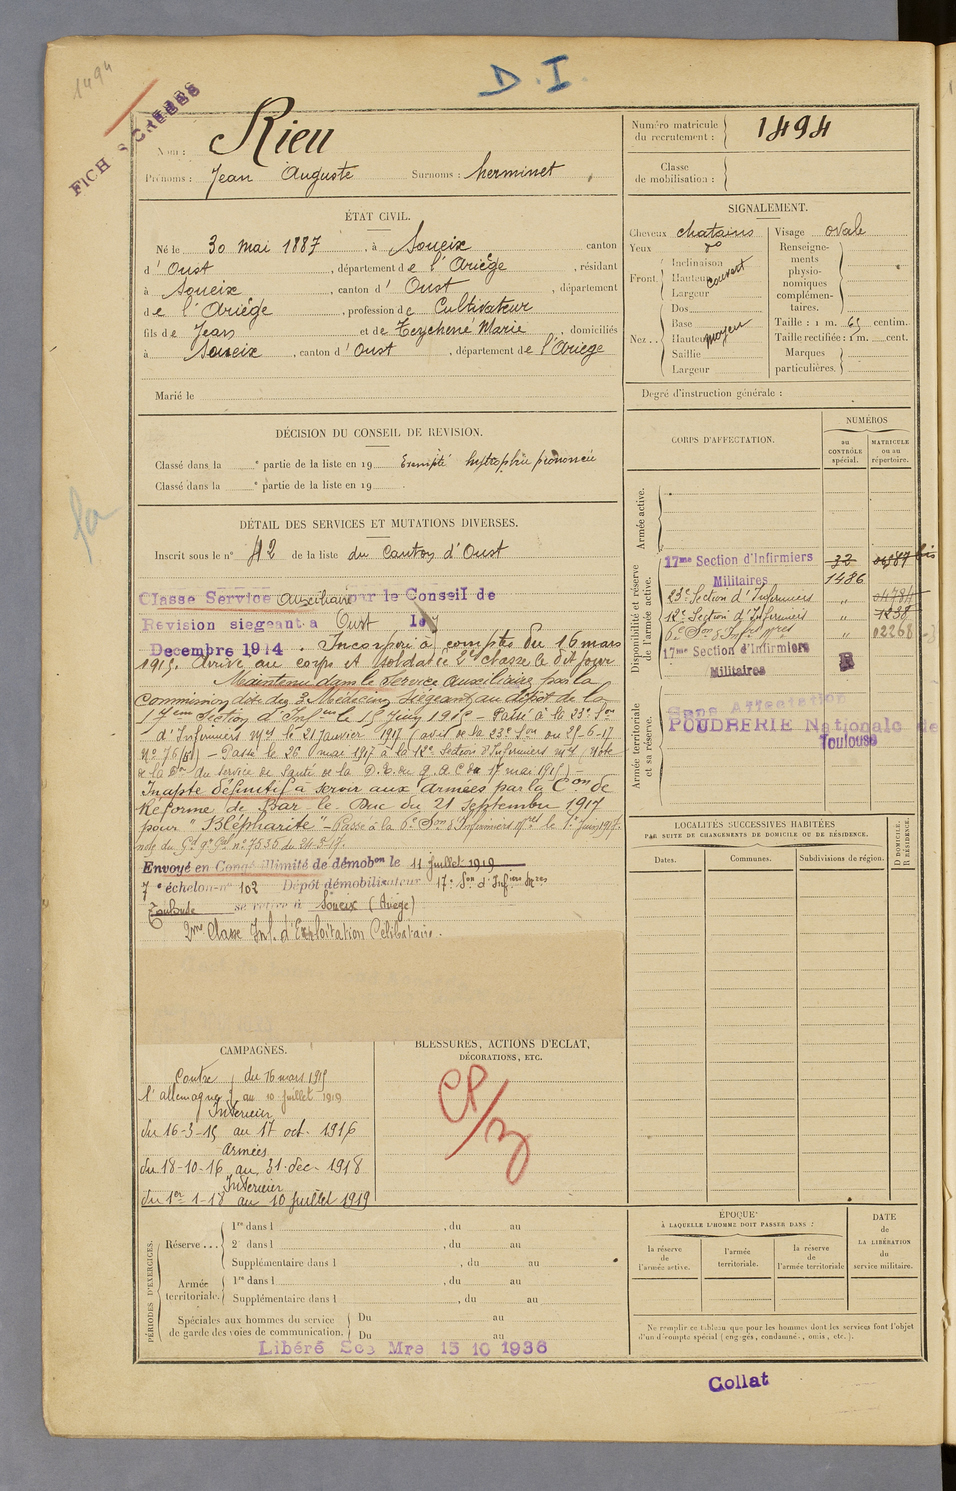 1494
D.I.
Nom : Rieu
Prénoms : Jean Auguste Surnoms : herminet
Numéro matricule
du recrutement : 1494
Classe
de mobilisation :
ÉTAT CIVIL.
Né le 30 mai 1887, à Soueix canton
d'Oust, département de l'Ariège, résidant
à Soueix, canton d'Oust, département
de l'Ariège, profession de Cultivateur
fils de Jean et de Teychené Marie, domiciliés
à Soueix, canton d'Oust, département de l'Ariege
Marié le
SIGNALEMENT.
Cheveux chatains
Yeux do
Front
Inclinaison
Hauteur couvert
Largeur
Nez
Dos
Base
Hauteur moyen
Saillie
Largeur
Visage ovale
Renseigne-
ments
physio-
nomiques
complémen-
taires.
Taille : 1 m. 65 centim.
Taille rectifiée : 1 m. cent.
Marques
particulières.
Degré d'instruction générale :
DÉCISION DU CONSEIL DE REVISION.
Classé dans la e partie de la liste en 19 Exempté prononcée
Classé dans la e partie de la liste en 19
DÉTAIL DES SERVICES ET MUTATIONS DIVERSES.
Inscrit sous le n° 42 de la liste du Canton d'Oust
Classe Service auxiliaire par le Conseil de
Revision siegeant a Oust le 7
Decembre 1914. Incorporé à compter du 16 mars
1915. Arrivé au corps et soldat de 2e classe le dit jour
Maintenu dans le service auxiliaire par la
Commission dite des 3 Médecins siégeant au dépôt de la
17eme Section d'Infers le 15 Juin 1915 – Passé à la 23e Son
d'Infirmiers Mres le 21 Janvier 1917 (avis de la 23e Son du 25-6-17
No 76) – Passé le 26 mai 1917 à la 12e Section d'Infirmiers (Note
de la du Service de Santé de la 17 mai 1915) –
Inapte définitif à servir aux Armées par la Con de
Réforme de Bar-le-Duc du 21 septembre 1917
pour "Blépharite" – Passé à la 6e Son d'Infirmiers Mres le 1er Juin 1917.
no 7535 du 24-9-17.
Envoyé en Congé illimité de démobon le 11 Juillet 1919
7e échelon-no 102 Dépôt démobilisateur 17e Son d'Infiers Mres
Toulouse se retire à Soueix (Ariège)
2me Classe Inf. d'Exploitation Célibataire.
CORPS D'AFFECTATION.
NUMÉROS
au
CONTRÔLE
spécial.
MATRICULE
ou au
répertoire.
Armée active.
Disponibilité et réserve
de l'armée active.
17me Section d'Infirmiers
Militaires
32
1486
bis
23e Section d'Infirmiers " 04784
12e Section d'Infirmiers " 1238
6e Son d'Infrs Mres " 02268
17me Section d'Infirmiers
Militaires
R
Armée territoriale
et sa réserve.
Sans Affectation
POUDRERIE Nationale de
Toulouse
LOCALITÉS SUCCESSIVES HABITÉES
PAR SUITE DE CHANGEMENTS DE DOMICILE OU DE RÉSIDENCE.
Dates.
Communes.
Subdivisions de région.
D DOMICILE.
R RÉSIDENCE.
CAMPAGNES.
Contre du 16 mars 1915
l'allemagne au 10 juillet 1919
Intérieur
du 16-3-15 au 17 oct. 1916
Armées
du 18-10-16 au 31-dec-1918
Intérieur
du 1er-1-18 au 10 Juillet 1919
BLESSURES, ACTIONS D'ÉCLAT,
DÉCORATIONS, ETC.
CP/3
PÉRIODES D'EXERCICES.
Réserve . . .
1re dans l , du au
2e dans l , du au
Supplémentaire dans l , du au
Armée
territoriale.
1re dans l , du au
Supplémentaire dans l , du au
Spéciales aux hommes du service
de garde des voies de communication.
Du au
Du au
ÉPOQUE
À LAQUELLE L'HOMME DOIT PASSER DANS :
la réserve
de
l'armée active.
l'armée
territoriale.
la réserve
de
l'armée territoriale
DATE
de
LA LIBÉRATION
du
service militaire.
Ne remplir ce tableau que pour les hommes dont les services font l'objet
d'un décompte spécial (engagés, condamnés, omis, etc.).
Libéré Sce Mre 15 10 1936
Collat